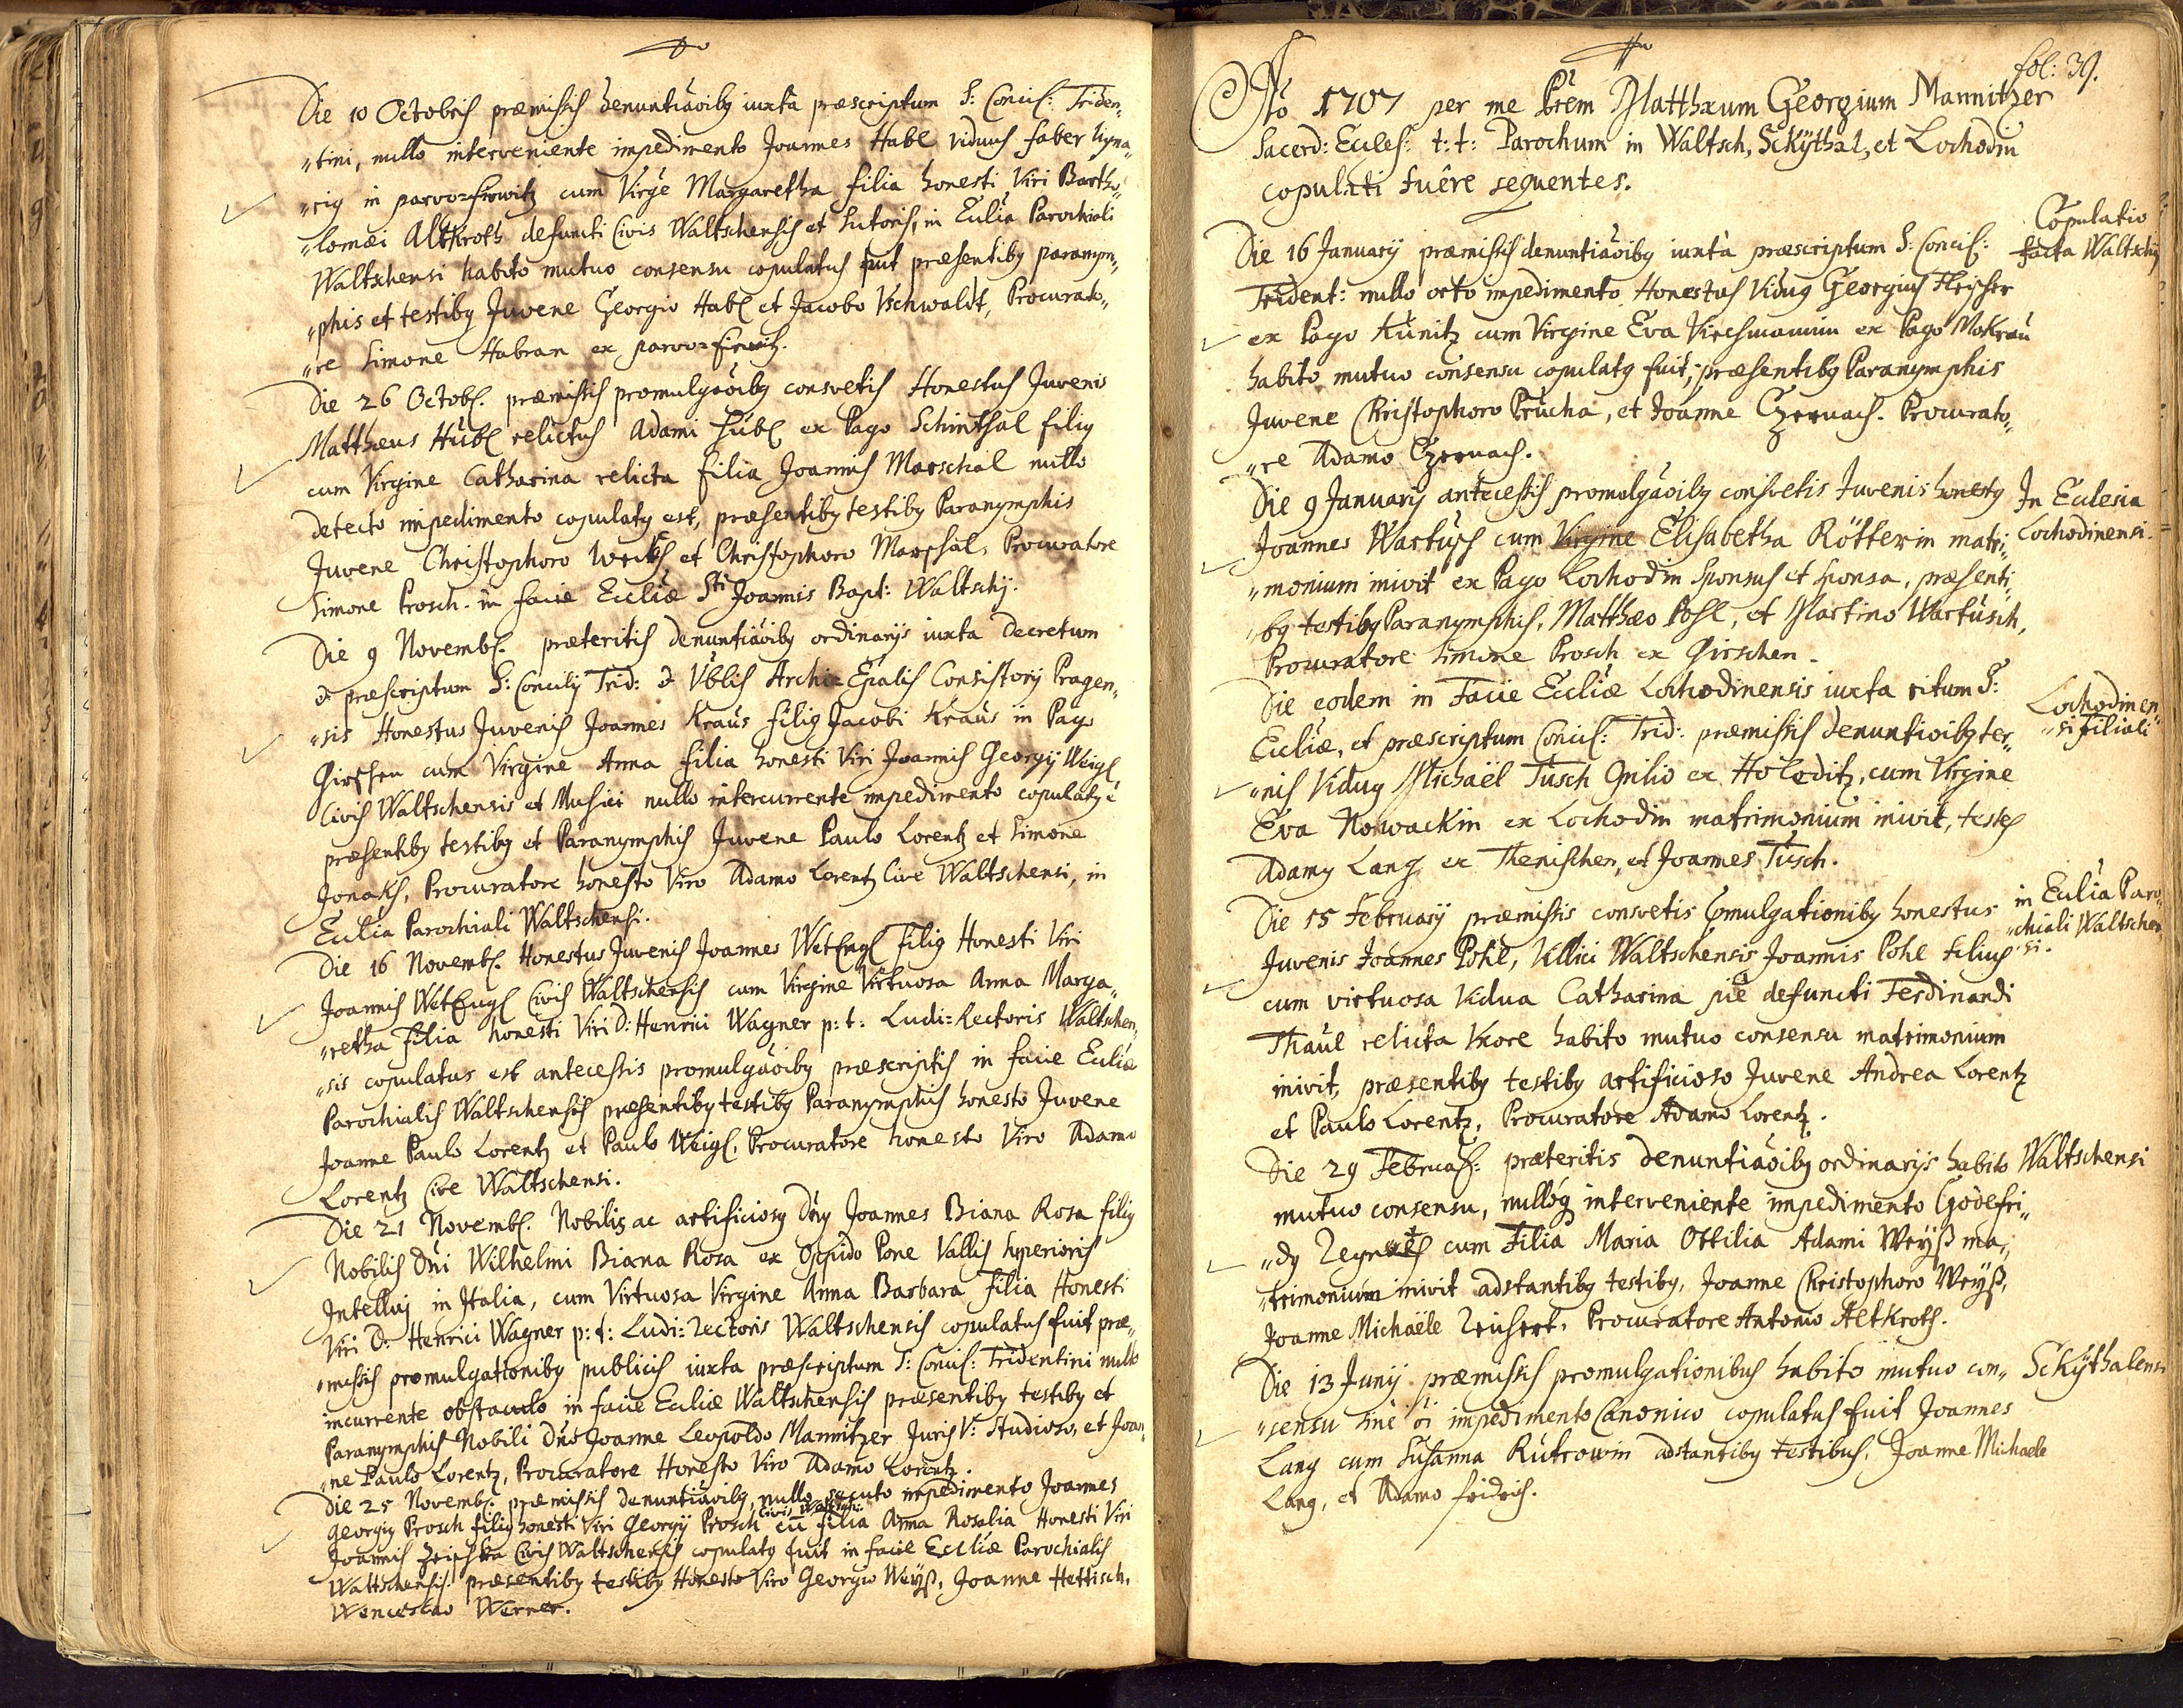 Die 10 Octobris præmissis denuntiaõibg iuxta præscriptum S: Concil: Triden„
„tini, nullo interveniente impedimento Joannes Habl viduus faber ligna„
„rig in parvo= cum Virge Margaretha filia honesti Viri Bartho„
„lomæi Altkroth defuncti Civis Waltschensis et Sutoris, in Ecclia Parochiali
Waltschensi habito mutuo consensu copulatus fuit præsentibg paranym„
„phis et testibg Juvene Georgio Habl et Jacobo Vschwaldt, Procurato„
„re Simone Habran ex parvo=
Die 26 Octobr. præmissis promulgaõibg consvetis Honestus Juvenis
Matthæus Hübl relictus Adami Hübl ex Pago Schinthal filig
cum Virgine Catharina relicta filia Joannis Marschal nullo
detecto impedimento copulatg est, præsentibg testibg Paranymphis
Juvene Christophoro et Christophoro Marschal, Procuratore
Simone Prosch. in facie Eccliæ Sti Joannis Bapt: Waltschij.
Die 9 Novembr. præteritis denuntiaõibg ordinarijs iuxta Decretum
& præscriptum S: Concilij Trid: & Vblis Archi=Epalis Consistorij Pragen„
„sis Honestus Juvenis Joannes Kraus filig Jacobi Kraus in Pago
Girschen cum Virgine Anna filia honesti Viri Joannis Georgij Weigl
Civis Waltschensis et Musici nullo intercurrente impedimento copulatg ẽ
præsentibg testibg et Paranymphis Juvene Paulo Lorentz et Simone
Jonaks, Procuratore honesto Viro Adamo Lorentz Cive Waltschensi, in
Ecclia Parochiali Waltschensi.
Die 16 Novembr. Honestus Juvenis Joannes Wetengl filig Honesti Viri
Joannis Wetengl Civis Waltschensis cum Virgine Virtuosa Anna Marga„
„retha filia honesti Viri D: Henrici Wagner p: t: Ludi=Rectoris Waltschen„
„sis copulatus est antecessis promulgaõibg præscriptis in facie Eccliæ
Parochialis Waltschensis præsentibg testibg Paranymphis honesto Juvene
Joanne Paulo Lorentz et Paulo Weigl. Procuratore honesto Viro Adamo
Lorentz Cive Waltschensi.
Die 21 Novembr. Nobilis ac artificiosg Dng Joannes Biana Rosa filig
Nobilis Dni Wilhelmi Biana Rosa ex Oppido Pone Vallis Superioris
Intelluj in Italia, cum Virtuosa Virgine Anna Barbara filia Honesti
Viri D: Henrici Wagner p: t: Ludi=Rectoris Waltschensis copulatus fuit præ„
„missis promulgationibg publicis iuxta præscriptum S: Concil: Tridentini nullo
incurrente obstaculo in facie Eccliæ Waltschensis præsentibg testibg et
Paranymphis Nobili Dno Joanne Leopoldo Mannitzer Juris V: Studioso, et Joan„
„ne Paulo Lorentz, Procuratore Honesto Viro Adamo Lorentz.
Die 25 Novembr. præmissis denuntiaõibg, nullo secuto impedimento Joannes
Georgig Prosch filig honesti Viri Georgij Prosch Civis Waltsch: cũ filia Anna Rosalia Honesti Viri
Joannis Civis Waltschensis copulatg fuit in facie Eccliæ Parochialis
Waltschensis. præsentibg testibg Honesto Viro Georgio Weyß, Joanne Hettisch,
Wenceslao Werner.
fol: 39.
Aõ 1707 per me Prem Matthæum Georgium Mannitzer
Sacerd: Eccles: t: t: Parochum in Waltsch, Sckÿthal, et Lochodin
copulati fuêre sequentes.
Copulatio
facta Waltschij
Die 16 Januarij præmissis denuntiaõibg iuxta præscriptum S: Concil:
Trident: nullo orto impedimento Honestus Vidug Georgius Fleischer
ex Pago Kunitz cum Virgine Eva Kirchmannin ex Pago Mokrau
habito mutuo consensu copulatg fuit, præsentibg Paranymphis
Juvene Christophoro Prucha, et Joanne Czernach. Procurato„
„re Adamo Czernach.
Die 9 Januarij antecessis promulgaõibg consvetis Juvenis honestg
In Ecclesia
Lochodinensi.
Joannes Wartusch cum Virgine Elisabetha Rötterin matri„
„monium inivit ex Pago Lochodin Sponsus et Sponsa, præsenti„
„bg testibg Paranymphis, Matthæo Pohl, et Martino Wartusch,
Procuratore Simone Prosch ex Girschen.
Die eodem in Facie Eccliæ Lochodinensis iuxta ritum S:
Lochodinen„
„si Filiali
Eccliæ, et præscriptum Concil: Trid: præmissis denuntioibg ter„
„nis Vidug Michaël Tusch Opilio ex Holeditz, cum Virgine
Eva Nowackin ex Lochodin matrimonium inivit, testes
Adamg Lang ex Thenischen, et Joannes Tusch.
Die 15 Februarij præmissis consvetis promulgationibg honestus
in Ecclia Paro„
„chiali Waltschen„
„si.
Juvenis Joannes Pohl, Villici Waltschensis Joannis Pohl filius
cum virtuosa Vidua Catharina piè defuncti Ferdinandi
Thaül relicta Uxore habito mutuo consensu matrimonium
inivit, præsentibg testibg artificioso Juvene Andrea Lorentz
et Paulo Lorentz, Procuratore Adamo Lorentz.
Die 29 Februar: præteritis denuntiaõibg ordinarijs habito
Waltschensi
mutuo consensu, nullóq interveniente impedimento Godefri„
„dg cum Filia Maria Ottilia Adami Weyß ma„
„trimonium inivit adstantibg testibg, Joanne Christophoro Weyß,
Joanne Michaële Reichert, Procuratore Antonio Altkroth.
Die 13 Junij præmissis promulgationibus habito mutuo con„
Sckÿthalensi
„sensu sine õi impedimento Canonico copulatus fuit Joannes
Lang cum Susanna Rutrowin adstantibg testibus, Joanne Michaele
Lang, et Adamo Fridrich.